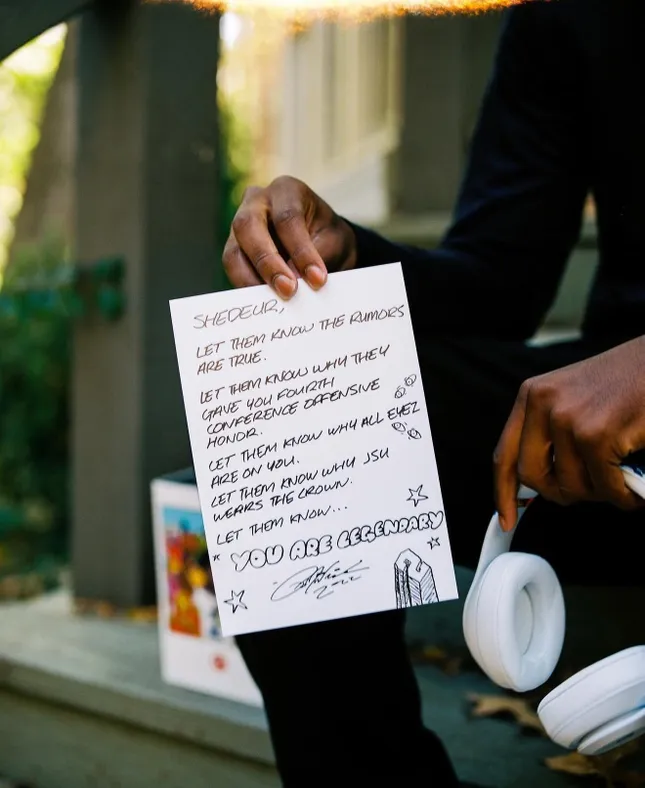 SHEDEUR,
LET THEM KNOW THE RUMORS
ARE TRUE.
LET THEM KNOW WHY THEY
GAVE YOU FOURTH
CONFERENCE OFFENSIVE
HONOR.
LET THEM KNOW WHY ALL EYEZ
ARE ON YOU.
LET THEM KNOW WHY JSU
WEARS THE CROWN.
LET THEM KNOW...
YOU ARE LEGENDARY
2022